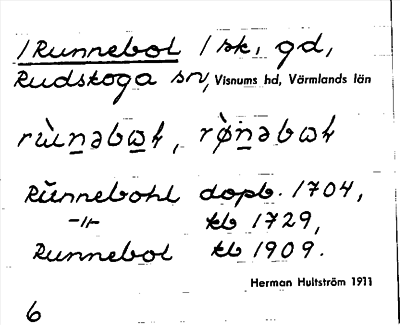 /Runnebol / sk, gd,
Rudskoga sn, Visnums hd, Värmlands län
Runnebohl dopb. 1704,
-"- kb 1729,
Runnebol kb 1909.
Herman Hultström 1911
6